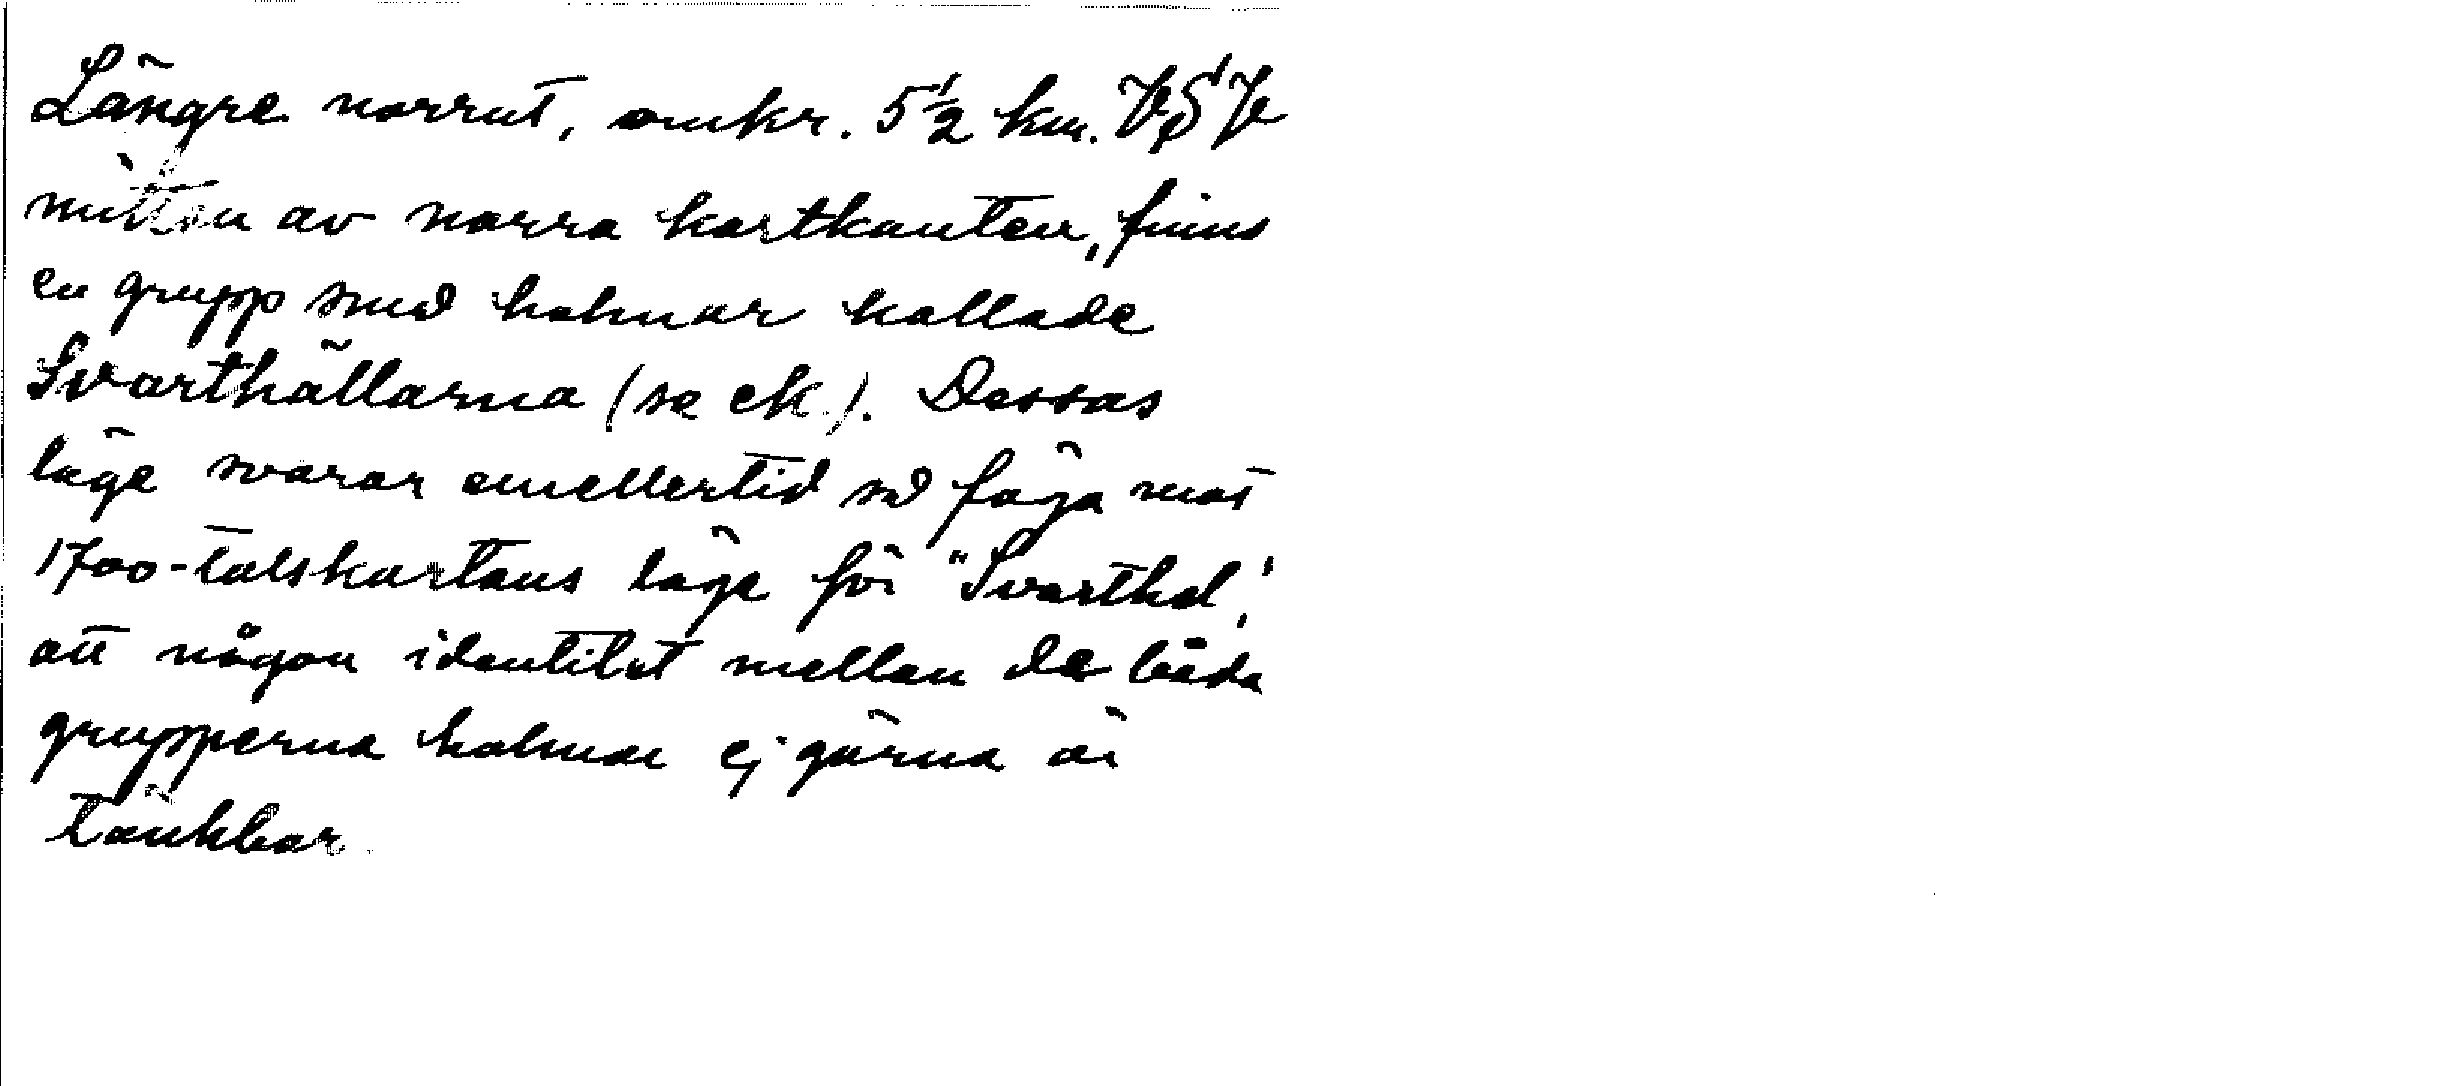 Längre norrut, omkr. 5 1/2 km. VSV
mitten av norra kartkanten, finns
en grupp små holmar kallade
Svarthällarna (se ek.). Dessas
läge svarar emellertid så föga mot
1700-talskartans läge för "Svarthäl",
att någon identitet mellan de båda
grupperna holmar ej gärna är
tänkbar.